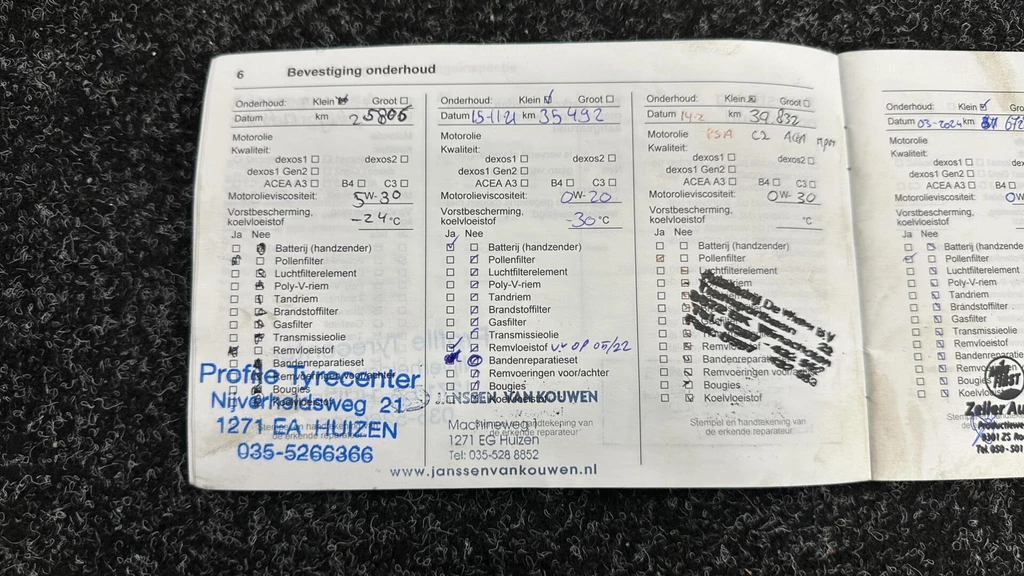 6 Bevestiging onderhoud
Onderhoud: Klein Groot
Datum km 25866
Motorolie
Kwaliteit:
dexos1 dexos2
dexos1 Gen2
ACEA A3 B4 C3
Motorolieviscositeit: 5W-30
Vorstbescherming,
koelvloeistof -24°C
Ja Nee
Batterij (handzender)
Pollenfilter
Luchtfilterelement
Poly-V-riem
Tandriem
Brandstoffilter
Gasfilter
Transmissieolie
Remvloeistof
Bandenreparatieset
Remvoeringen voor/achter
Bougies
Koelvloeistof
Profile Tyrecenter
Nijverheidsweg 21
1271 EA HUIZEN
035-5266366
Onderhoud: Klein Groot
Datum 15-11-21 km 35492
Motorolie
Kwaliteit:
dexos1 dexos2
dexos1 Gen2
ACEA A3 B4 C3
Motorolieviscositeit: 0W-20
Vorstbescherming,
koelvloeistof -30°C
Ja Nee
Batterij (handzender)
Pollenfilter
Luchtfilterelement
Poly-V-riem
Tandriem
Brandstoffilter
Gasfilter
Transmissieolie
Remvloeistof OP 05/22
Bandenreparatieset
Remvoeringen voor/achter
Bougies
Koelvloeistof
JANSSEN VAN KOUWEN
Stempel en handtekening van
de erkende reparateur
Machineweg 1
1271 EG Huizen
Tel: 035-528 8852
www.janssenvankouwen.nl
Onderhoud: Klein Groot
Datum 14-2 km 39.832
Motorolie PSA C2
Kwaliteit:
dexos1 dexos2
dexos1 Gen2
ACEA A3 B4 C3
Motorolieviscositeit: 0W-30
Vorstbescherming,
koelvloeistof °C
Ja Nee
Batterij (handzender)
Pollenfilter
Luchtfilterelement
Remvloeistof
Bandenrepara
Remvoeringen voor/achter
Bougies
Koelvloeistof
Stempel en handtekening van
de erkende reparateur
Onderhoud: Klein Gro
Datum 03-2024 km
Motorolie
Kwaliteit:
dexos1
dexos1 Gen2
ACEA A3 B4
Motorolieviscositeit:
Vorstbescherming,
koelvloeistof
Ja Nee
Batterij (handzende
Pollenfilter
Luchtfilterelement
Poly-V-riem
Tandriem
Brandstoffilter
Gasfilter
Transmissieolie
Remvloeistof
Bandenreparaties
Remvoering
Bougies
Koelvloe
Zeller Au
Productiewe
9301 ZS Ro
Tel. 050 - 501